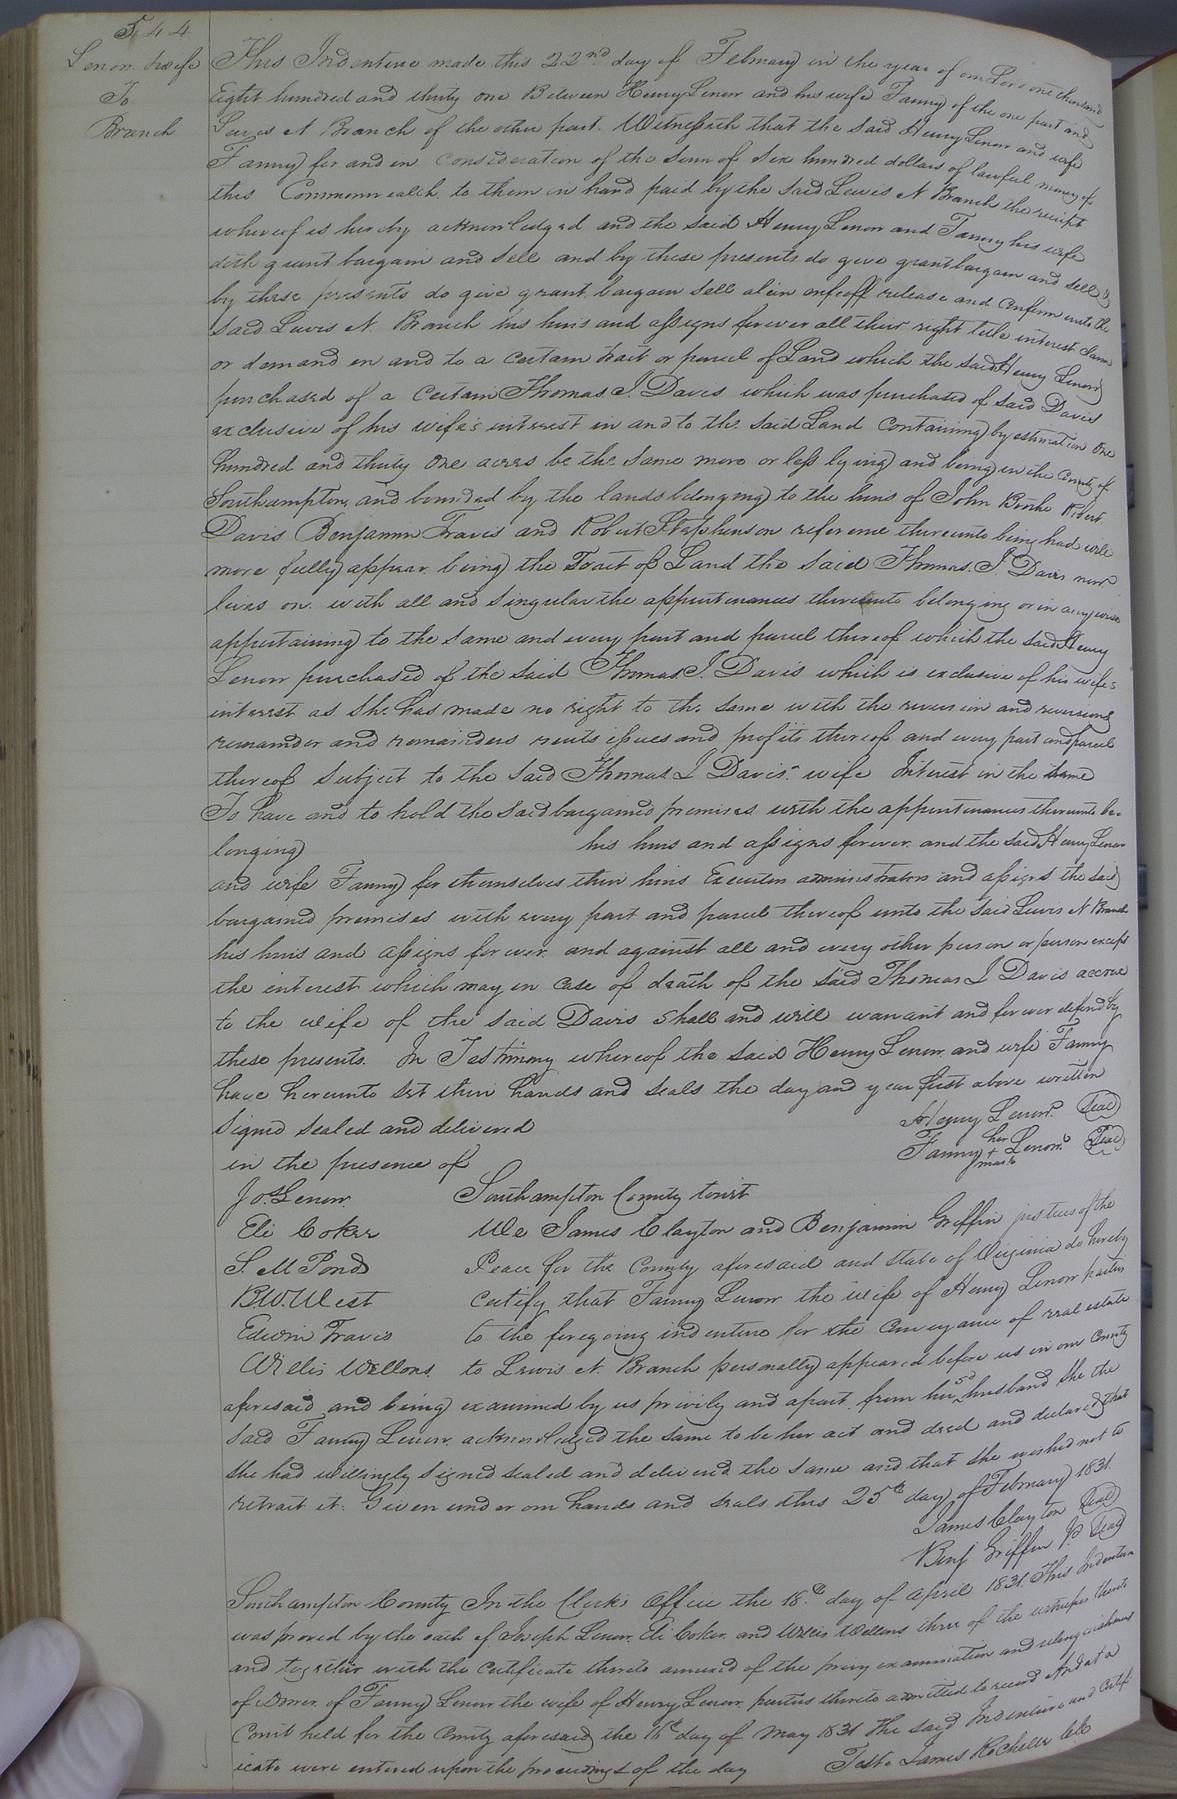 544
Lenow & wife
To
Branch
This Indenture made this 22nd day of February in the year of our Lord one thousand
Eight hundred and thirty one Between Henry Lenow and his wife Fanny of the one part and
Lewis N Branch of the other part. Witnesseth that the said Henry Lenow and wife
Fanny for and in consideration of the sum of Six hundred dollars of lawful money of
this Commonwealth to them in hand paid by the said Lewis N Branch the receipt
whereof is hereby acknowledged and the said Henry Lenow and Fanny his wife
doth grant bargain and sell and by these presents do give grant bargain and sell &
by these presents do give grant bargain sell alien enfeoff release and confirm unto the
said Lewis N. Branch his heirs and assigns forever all their right title interest claim
or demand in and to a certain tract or parcel of Land which the said Henry Lenow
purchased of a certain Thomas J. Davis which was purchased of said Davis
exclusive of his wife's interest in and to the said Land containing by estimation one
hundred and thirty one acres be the same more or less lying and being in the County of
Southampton, and bounded by the lands belonging to the heirs of John Booke Robert
Davis Benjamin Travis and Robert Stephenson reference thereunto being had will
more fully appear being the Tract of Land the said Thomas. J. Davis now
lives on with all and singular the appurtenances thereunto belonging or in any wise
appertaining to the same and every part and parcel thereof which the said Henry
Lenow purchased of the said Thomas J. Davis which is exclusive of his wife's
interest as she has made no right to the same with the reversion and reversions
remainder and remainders rents issues and profits thereof and every part and parcel
thereof subject to the said Thomas J Davis' wife Interest in the same
To have and to hold the said bargained premises with the appurtenances thereunto be-
longing his heirs and assigns forever. and the said Henry Lenow
and wife Fanny for themselves their heirs Executors administrators and assigns the said
bargained premises with every part and parcel thereof unto the said Lewis N Branch
his heirs and assigns forever and against all and every other person or person except
the interest which may in case of death of the said Thomas J Davis accrue
to the wife of the said Davis shall and will warrant and forever defend by
these presents. In Testimony whereof the said Henry Lenow and wife Fanny
have hereunto set their hands and seals the day and year first above written
Signed sealed and delivered Henry Lenow. Seal
in the presence of Fanny her + mark Lenow. Seal
Jo. Lenow. Southampton County Court
Eli Coker We James Clayton and Benjamin Griffin justices of the
S. M Pond Peace for the County aforesaid and State of Virginia do hereby
B. W. West certify that Fanny Lenow the wife of Henry Lenow parties
Edwin Travis to the foregoing indenture for the conveyance of real estate
Willis Wellons. to Lewis N. Branch personally appeared before us in our County
aforesaid and being examined by us privily and apart from her sd husband she the
said Fanny Lenow acknowledged the same to be her act and deed and declared that
she had willingly signed sealed and delivered the same and that she wished not to
retract it. Given under our hands and seals this 25th day of February 1831.
James Clayton Seal
Benj Griffin J.P. Seal
Southampton County In the Clerk's Office the 18th day of April 1831. This Indenture
was proved by the oath of Joseph Lenow. Eli Coker. and Willis Wellons three of the witnesses thereto
and together with the certificate thereto annexed of the privy examination and relinquishment
of dower of Fanny Lenow the wife of Henry Lenow parties thereto admitted to record And at a
Court held for the County aforesaid the 16th day of May 1831 The said Indenture and Certif-
icate were entered upon the proceedings of the day Teste James Rochelle Clk